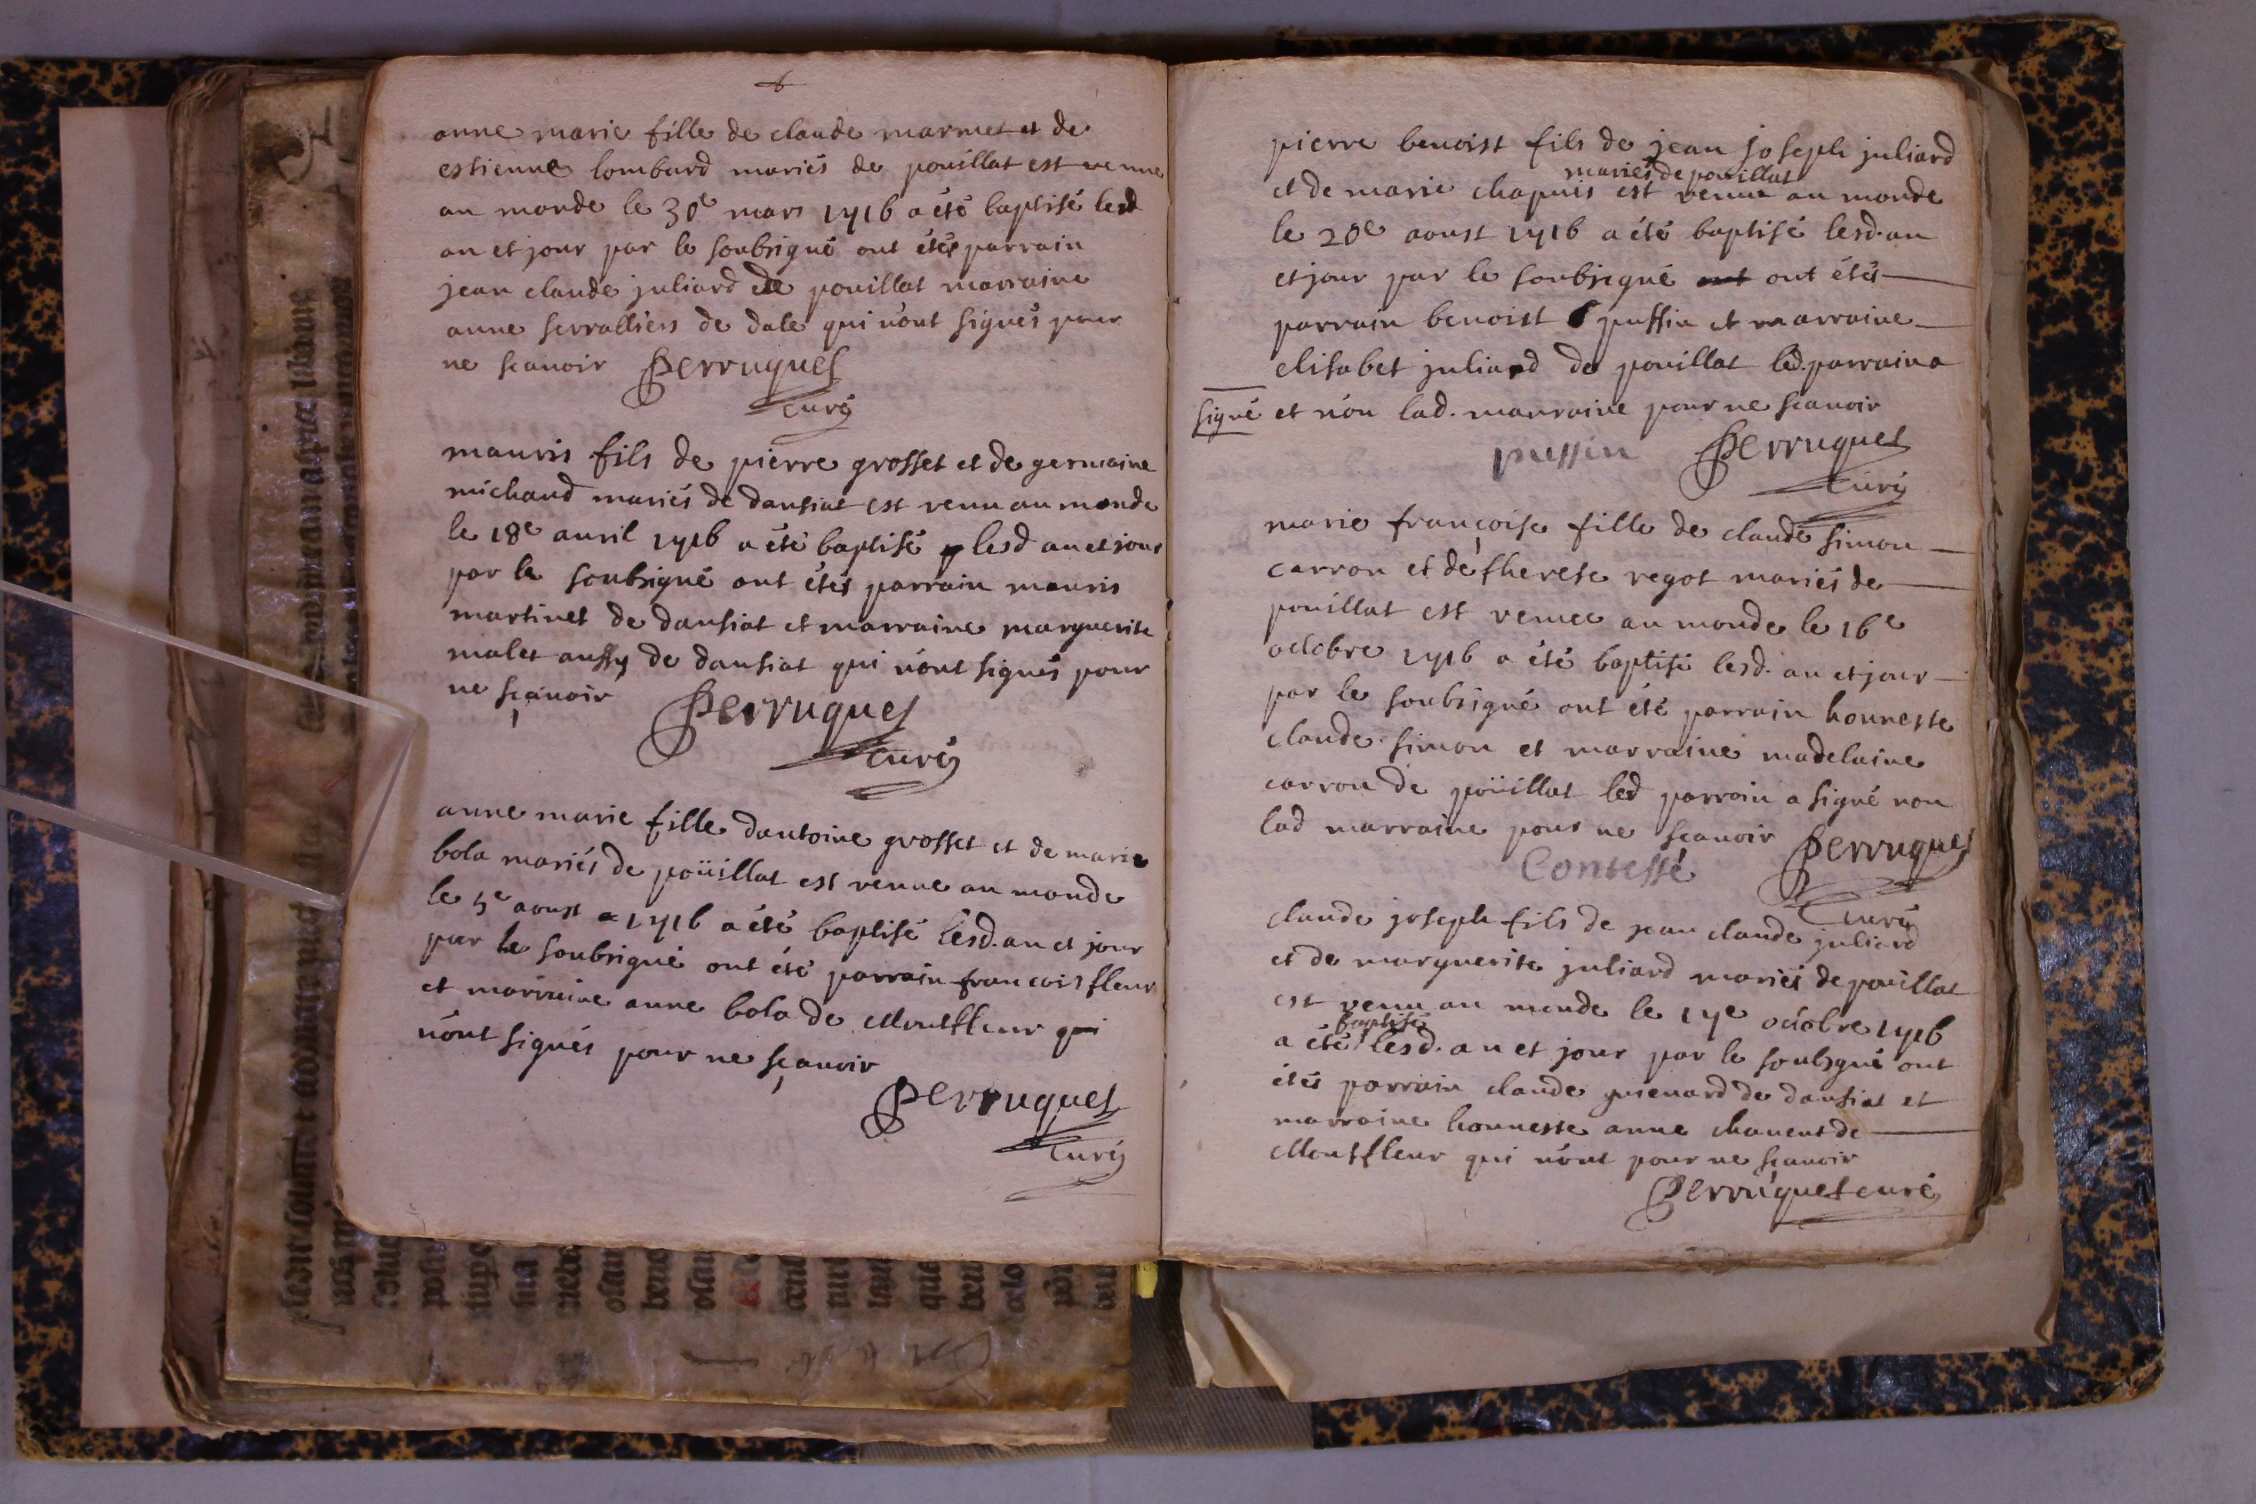 anne marie fille de claude marmet et de
estienne lombard mariés de pouillat est venue
au monde le 30e mars 1716 a été baptisé lesd
an et jour par le soubsigné ont étés parrain
jean claude juliard de pouillat marraine
anne serralliers de dale qui n'ont signés pour
ne scavoir Perruquet
curé
mauris fils de pierre grosset et de germaine
michaud mariés de dansiat est venu au monde
le 18e avril 1716 a été baptisé lesd an et jour
par le soubsigné ont étés parrain mauris
martinet de dansiat et marraine marguerite
malet aussy de dansiat qui n'ont signés pour
ne sçavoir Perruquet
curé
anne marie fille dantoine grosset et de marie
bola mariés de poüillat est venue au monde
le 5e aoust 1716 a été baptisé lesd. an et jour
par le soubsigné ont été parrain francois fleur
et marraine anne bola de Montfleur qui
n'ont signés pour ne sçavoir
Perruquet
curé
pierre benoist fils de jean joseph juliard
mariés de pouillat
et de marie chapuis est venue au monde
le 20e aoust 1716 a été baptisé lesd. an
et jour par le soubsigné ont étés
parrain benoist pussin et marraine
elisabet juliard de pouillat led. parrain a
signé et non lad. marraine pour ne scavoir
pussin Perruquet
curé
marie françoise fille de claude simon
carron et de therese regot mariés de
pouillat est venue au monde le 16e
octobre 1716 a été baptisé lesd. an et jour
par le soubsigné ont été parrain honneste
claude simon et marraine madelaine
carron de poüillat led parrain a signé non
lad marraine pour ne scavoir Perruquet
Contessé
curé
claude joseph fils de jean claude juliard
et de marguerite juliard mariés de pouillat
est venu au monde le 17e octobre 1716
baptisé
a été lesd. an et jour par le soubsgné ont
étés parrain claude de dansiat et
marraine honneste anne de
Montfleur qui n'ont pour ne sçavoir
Perruquet curé